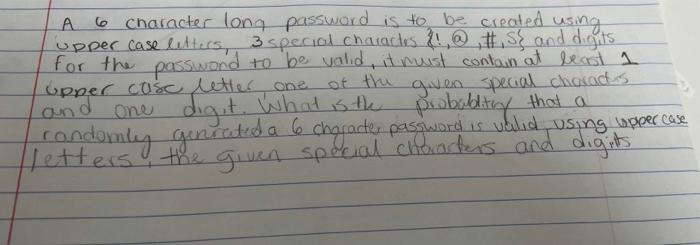 A 6 character long password is to be created using
upper case letters, 3 special charactrs {!, @, #, S} and digits
For the password to be valid, it must contain at least 1
upper case letter, one of the given special charactes
and one digit. What is the probability that a
randomly genrated a 6 character password is valid, using upper case
letters, the given special characters and digits